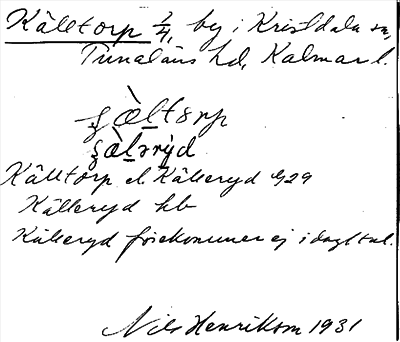 Källtorp 2/4, by i Kristdala sn,
Tunaläns hd, Kalmar l.
ʂæ̀ltɔrp
ʂæ̀lərȳd
Källtorp el. Källeryd
Källeryd hb
Källeryd förekommer ej i dagl. tal.
Nils Henrikson 1931